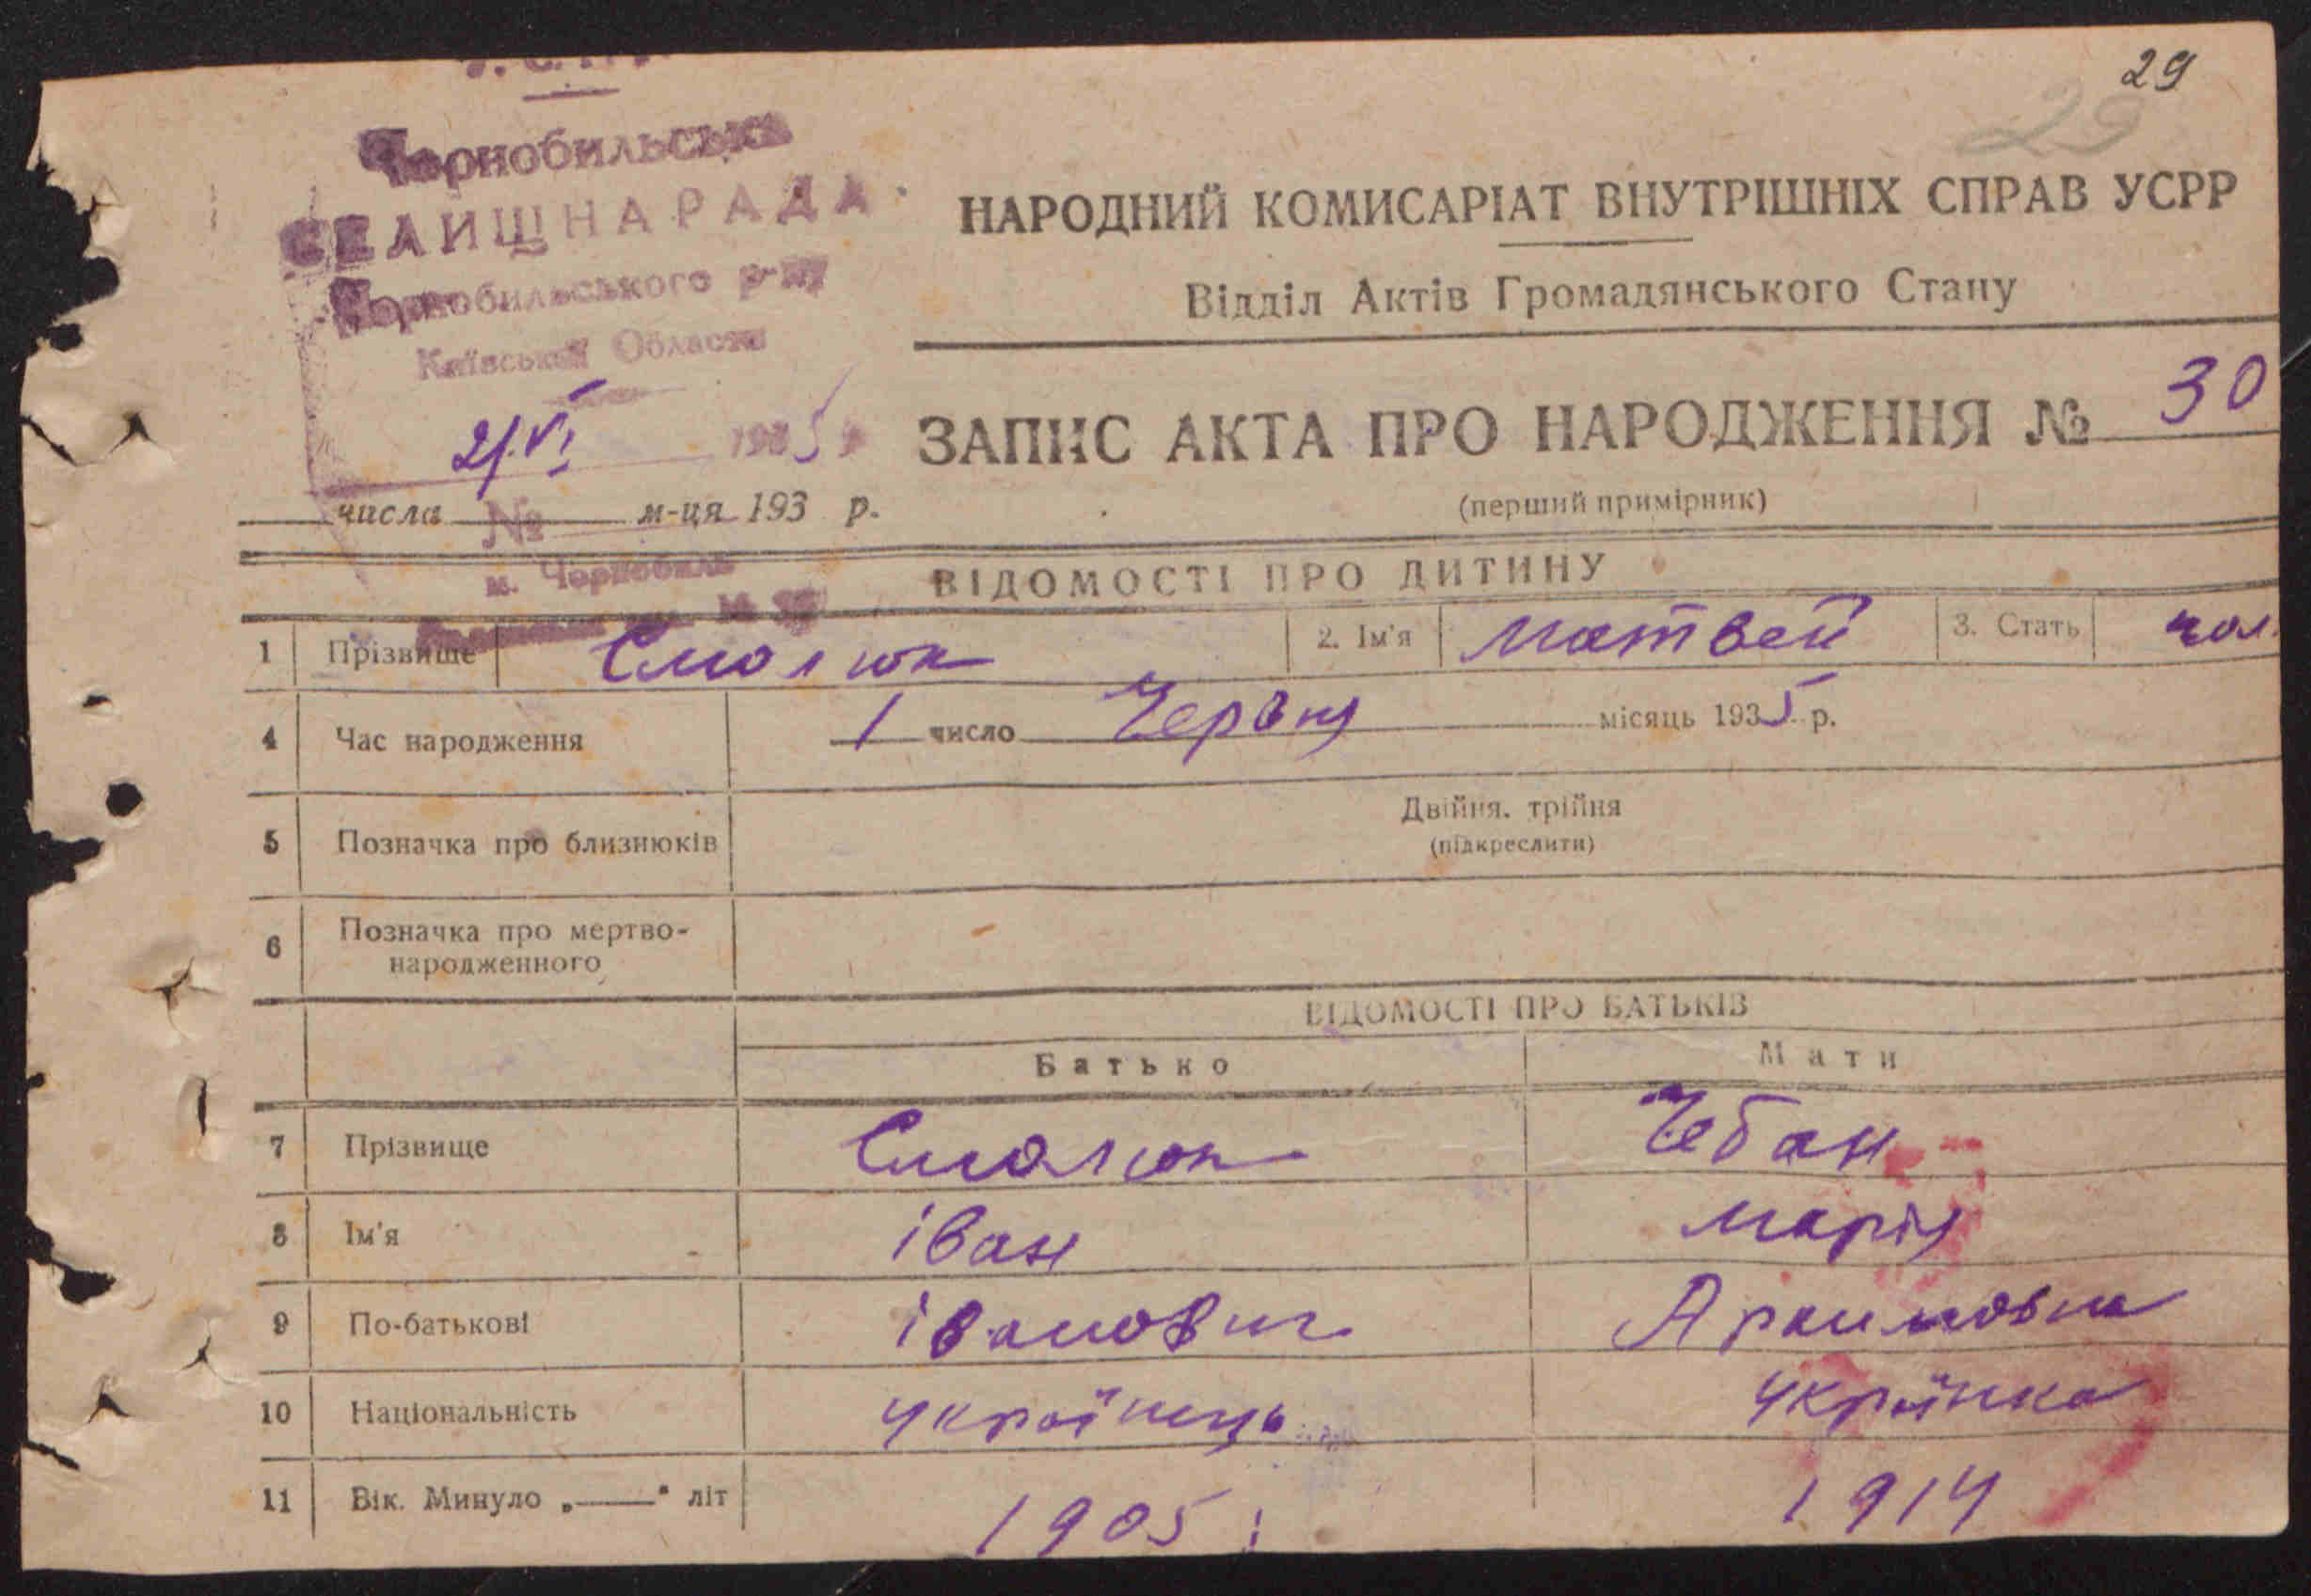 29
29
Чорнобильська
СЕЛИЩНА РАДА
Чорнобильського р-ну
Київської Области
21/VI 1935 р
числа м-ця 193 р.
№
м. Чернобиль
НАРОДНИЙ КОМИСАРІАТ ВНУТРІШНІХ СПРАВ УСРР
Відділ Актів Громадянського Стану
ЗАПИС АКТА ПРО НАРОДЖЕННЯ № 30
(перший примірник)
ВІДОМОСТІ ПРО ДИТИНУ
1 Прізвище Смолюк 2. Ім'я Матвей 3. Стать чол.
4 Час народження 1 число Червня місяць 1935 р.
5 Позначка про близнюків Двійня, трійня
(підкреслити)
6 Позначка про мертво-
народженного
ВІДОМОСТІ ПРО БАТЬКІВ
Батько Мати
7 Прізвище Смолюк Чебан
8 Ім'я Іван Марія
9 По-батькові Іванович
10 Національність Українець Українка
11 Вік. Минуло „——" літ 1905 1914